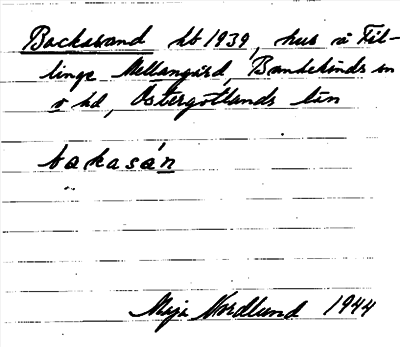 Backasand hb 1939, hus å Fil-
linge Mellangård, Bankekinds sn
o hd, Östergötlands län
bakasán
Maja Nordlund 1944